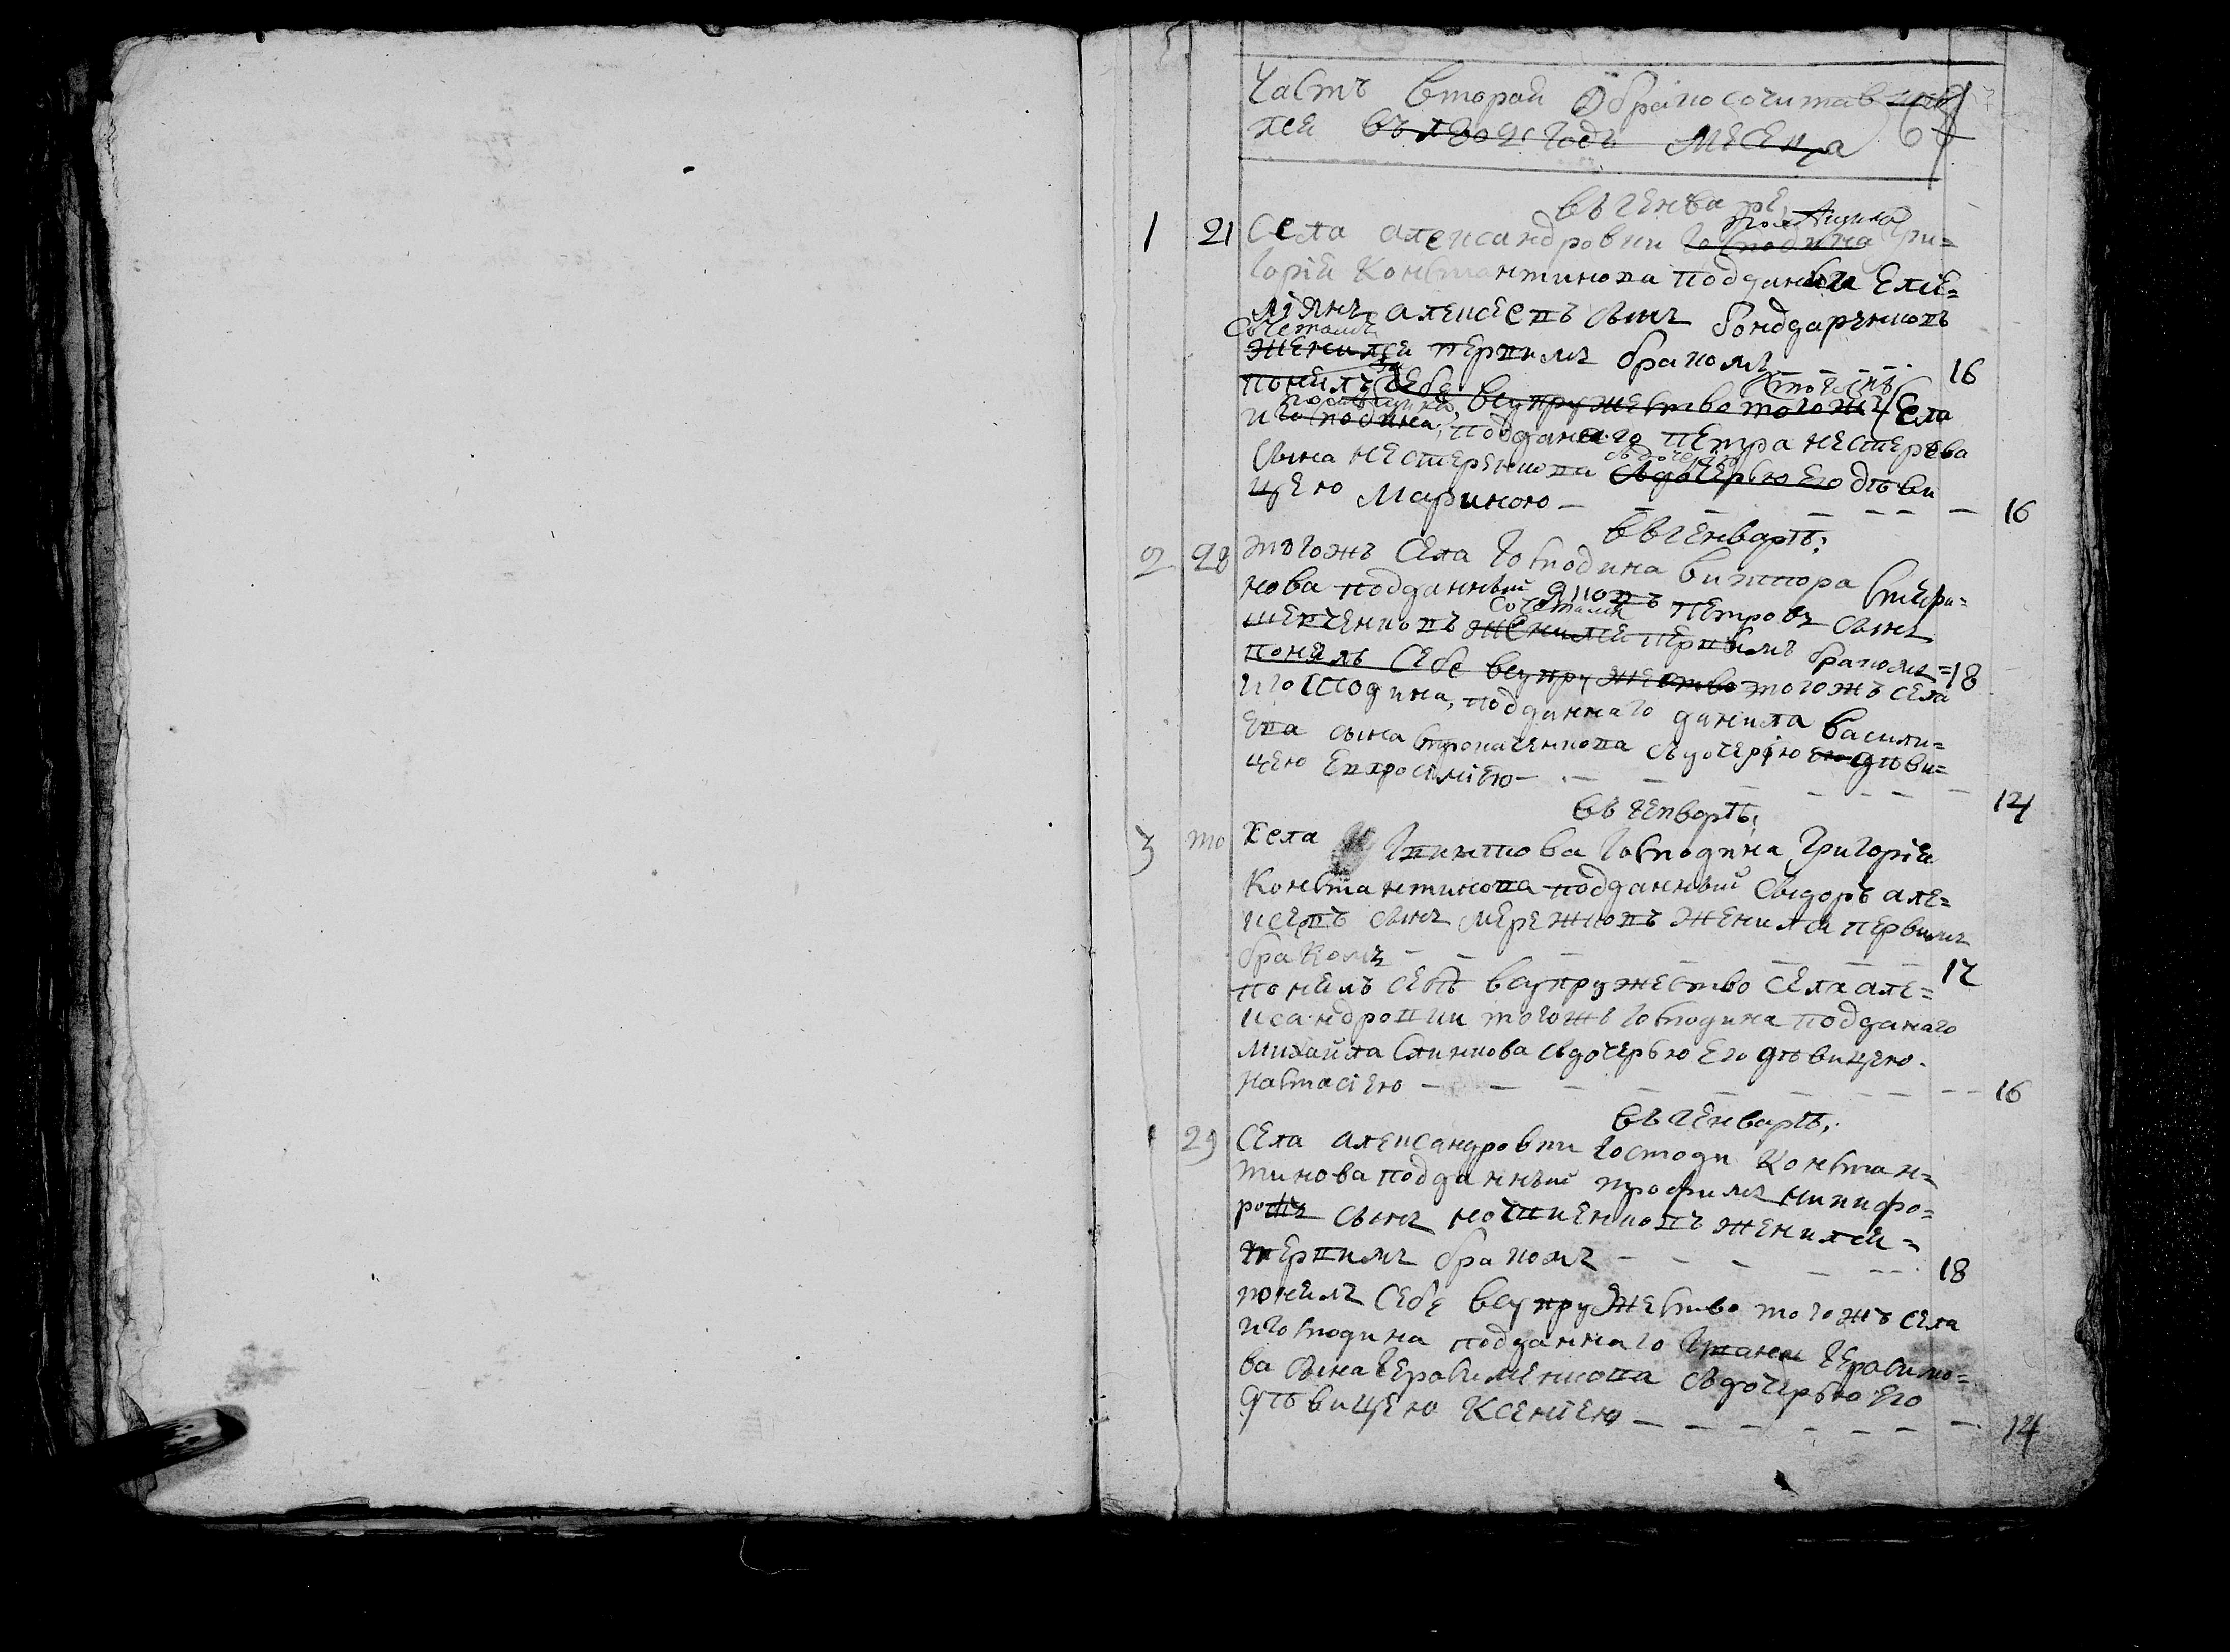 Часть вторай Обракосочитав
хся въ годъ месеца 67
въ генваре
1 21 Села александровки господина помещика Гри=
горія Константинова подданный Еме=
ліянъ алексеевъ сынъ бондаренковъ
сочетался
женился первимъ бракомъ 16
понялъ себе всупружество тогожъ Села
и господина подданаго петра нестерова
сына нестеренкова здочерью его дѣви
цею Мариною 16
въ генварѣ;
2 28 тогожъ села господина виктора
нова подданный петровъ сынъ
сочетался
женился первымъ бракомъ = 18
понялъ себе всупружество тогожъ села
и господина, подданнаго данила васили=
ева сына здочерью его дѣви=
цею Евфросиміею 14
въ генварѣ;
3 то села господина Григорія
Константинова подданный Сидоръ але=
ксеевъ сынъ мережковъ женился первимъ
бракомъ 17
понялъ себѣ всупружество села але=
ксандровки тогожъ господина подданаго
михайла здочерью его дѣвицею
настасіею 16
въ генварѣ;
29 села александровки господи Констан=
тинова подданный трофимъ никифо=
ровъ сынъ женился=
первимъ бракомъ 18
понялъ себе всупружество тогожъ села
и господина подданнаго герасимо=
ва сына герасименкова здочерью его
дѣвицею Ксеніею 14